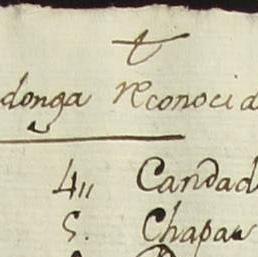 donga reconocid
4,, Candad
5. Chapa